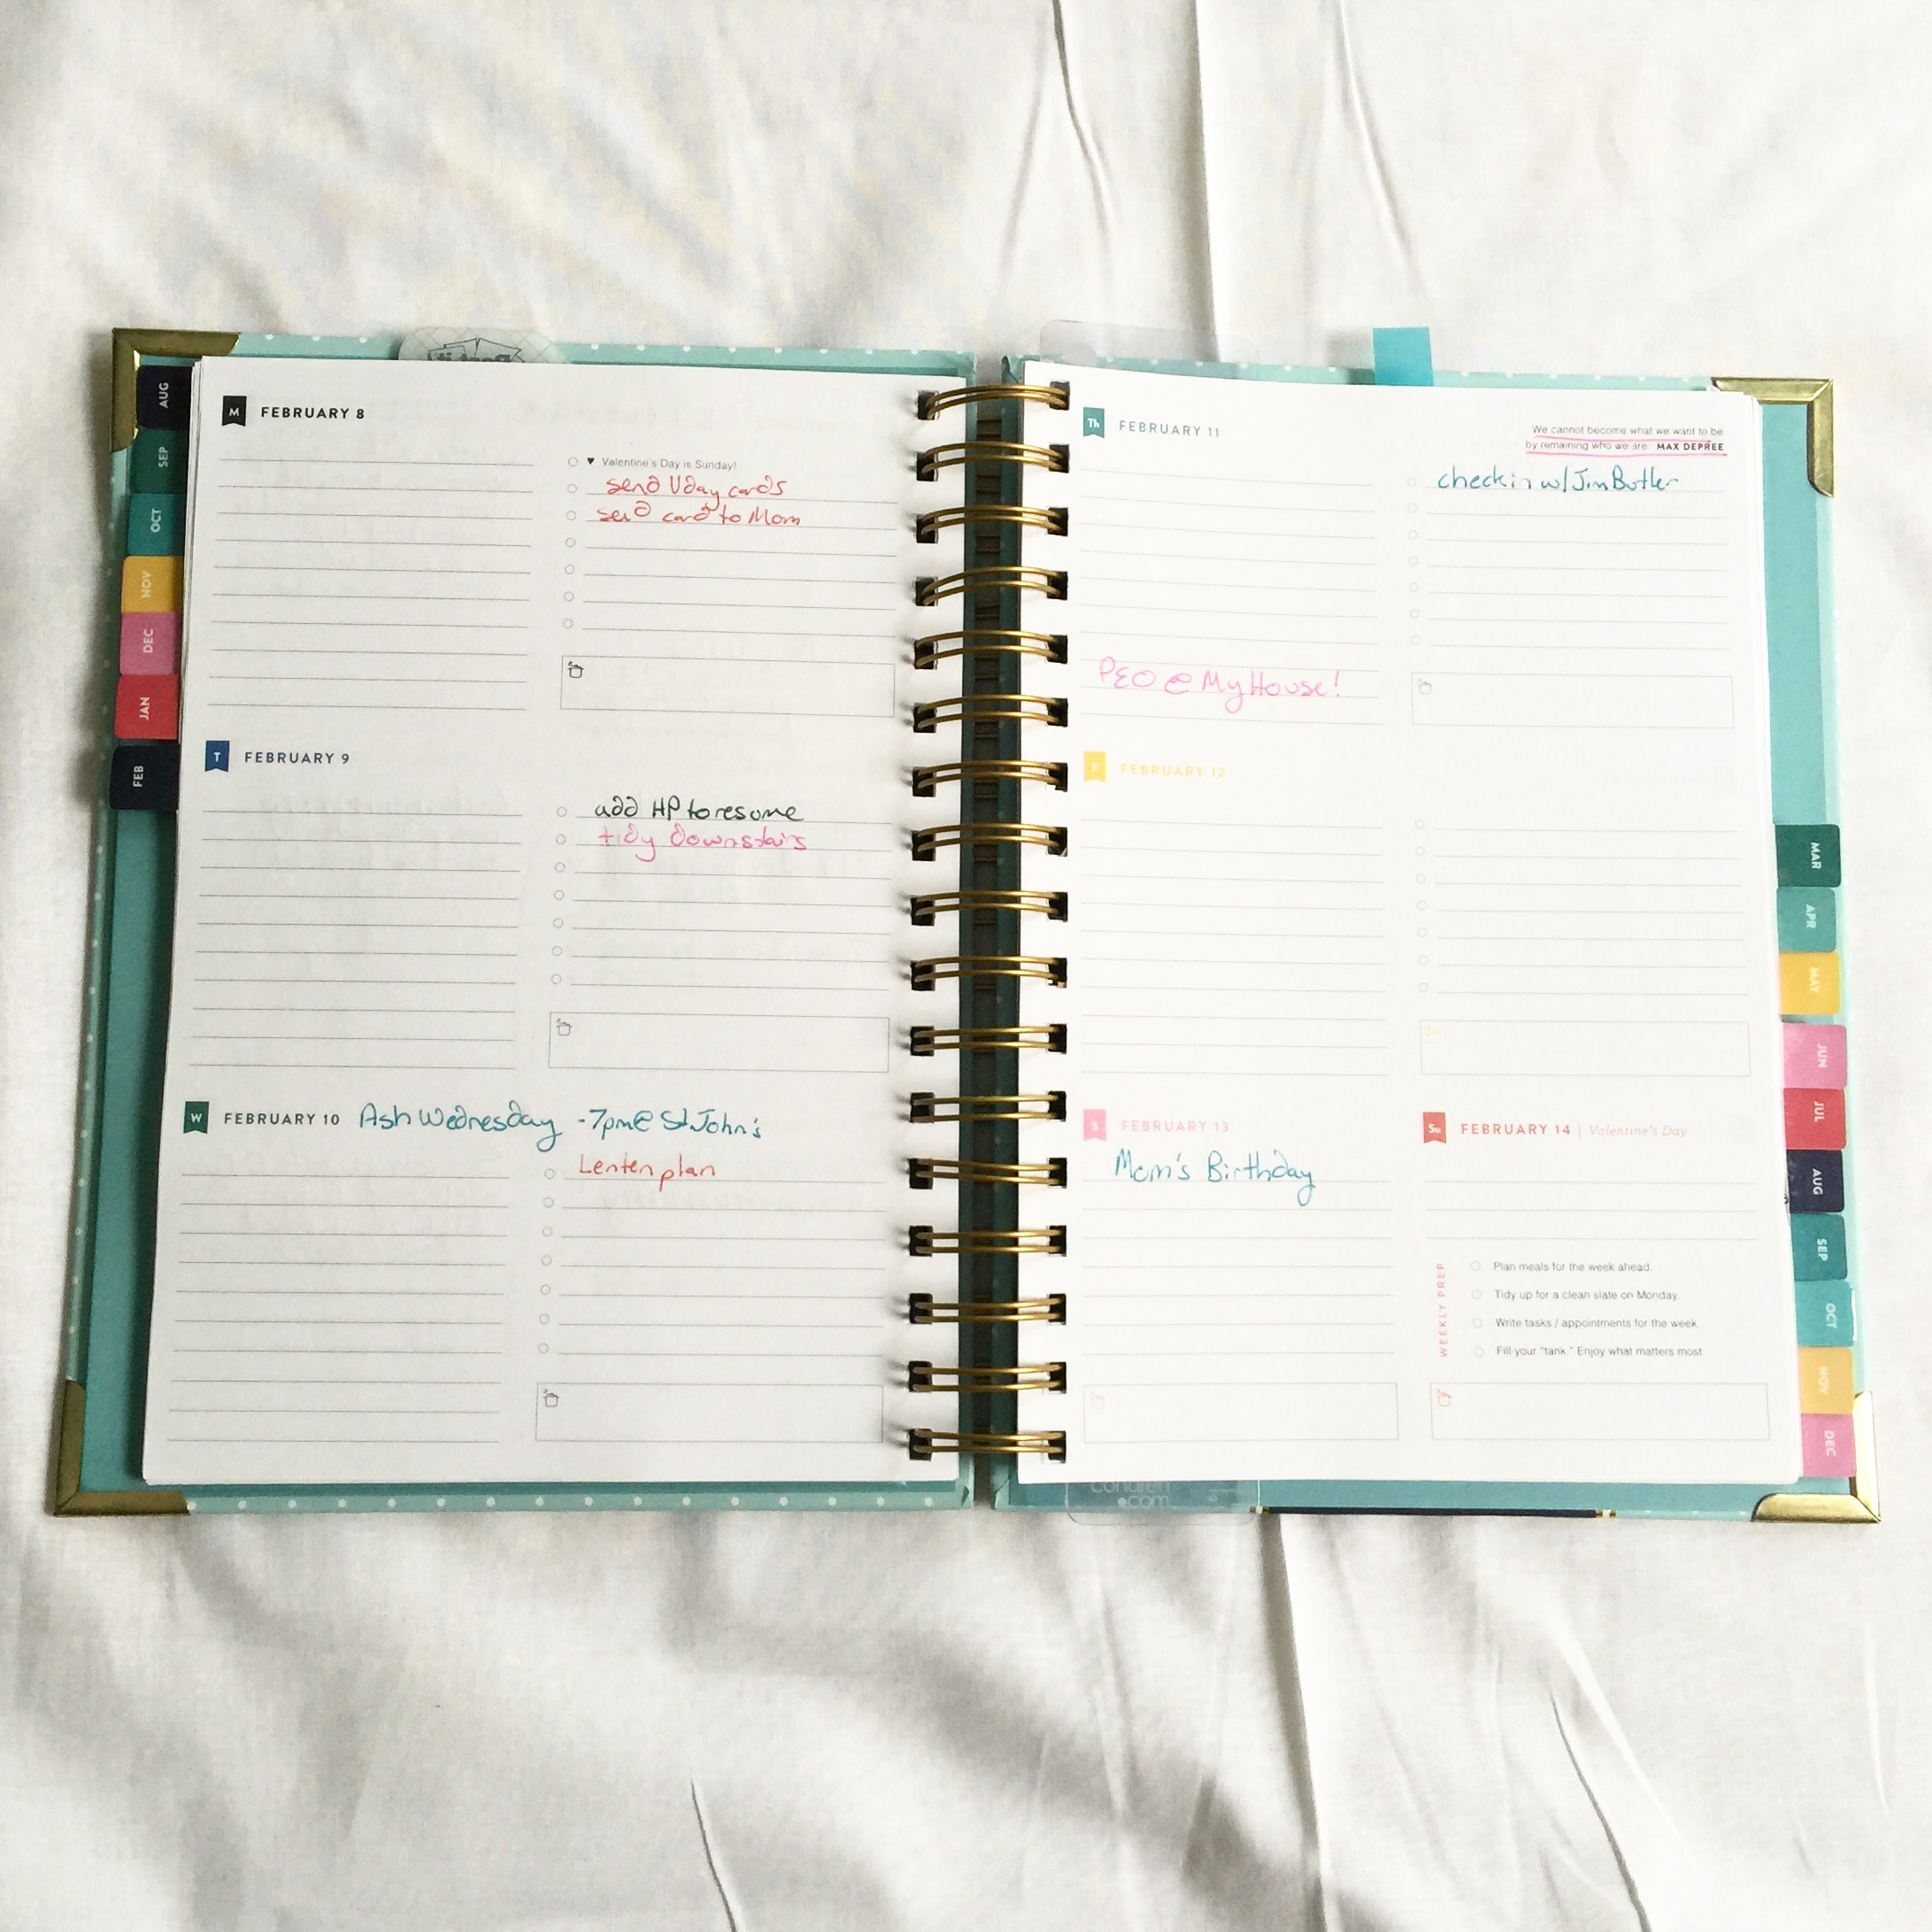 AUG
SEP
OCT
NOV
DEC
JAN
FEB
M FEBRUARY 8
♥ Valentine's Day is Sunday!
send Vday cards
send card to Mom
T FEBRUARY 9
add HP to resume
tidy downstairs
W FEBRUARY 10 Ash Wednesday -7pm@ St John's
Lenten plan
Th FEBRUARY 11
We cannot become what we want to be
by remaining who we are. MAX DEPREE
check in w/ Jim Butler
PEO @ My House!
F FEBRUARY 12
S FEBRUARY 13
Mom's Birthday
Su FEBRUARY 14 | Valentine's Day
WEEKLY PREP
Plan meals for the week ahead.
Tidy up for a clean slate on Monday.
Write tasks / appointments for the week.
Fill your "tank." Enjoy what matters most.
MAR
APR
MAY
JUN
JUL
AUG
SEP
OCT
NOV
DEC
.com